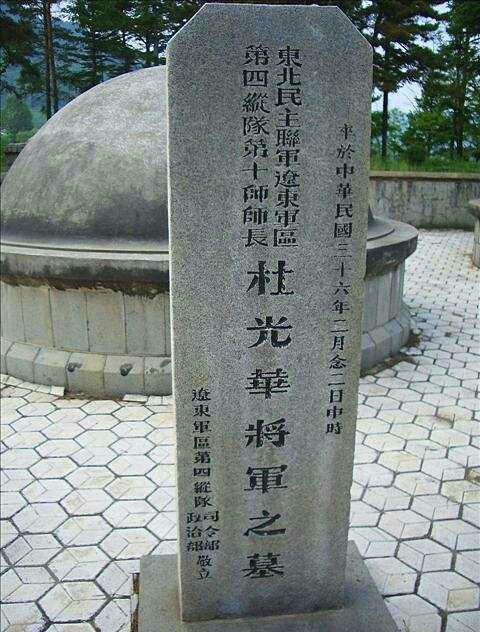 卒於中華民國三十六年二月念二日申時
東北民主聯軍遼東軍區
第四縱隊第十師師長
杜光華將軍之墓
遼東軍區第四縱隊
司令部
政治部
敬立